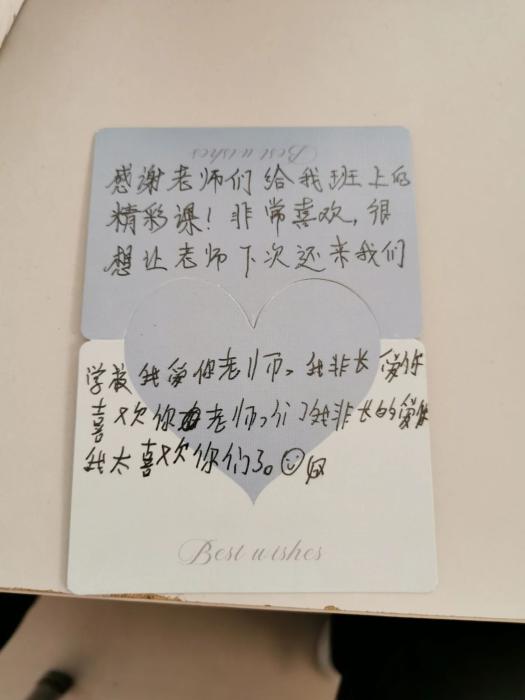 Best wishes
感谢老师们给我班上的
精彩课！非常喜欢，很
想让老师下次还来我们
学教我爱你老师。我非长爱你
喜欢你老师们我非长的爱你
我太喜欢你们了。
Best wishes